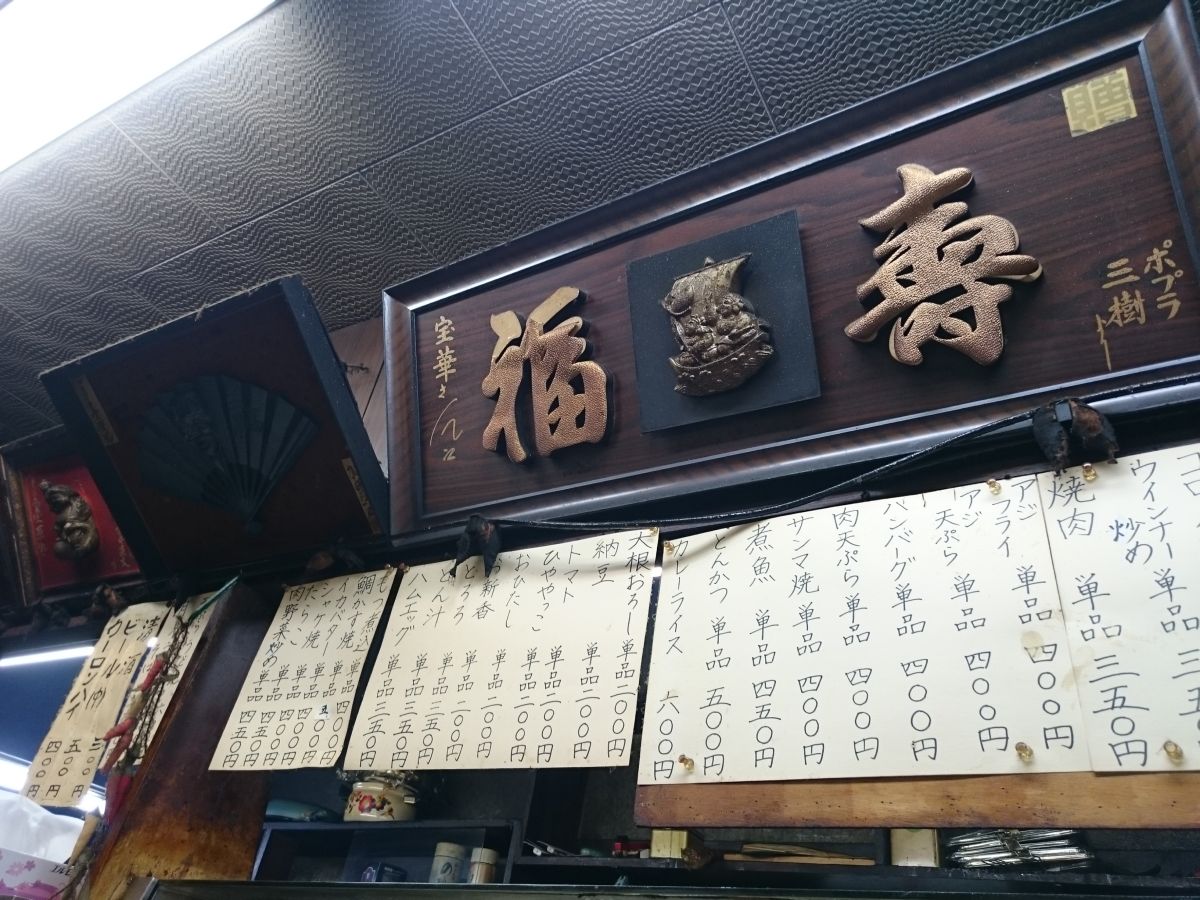 贈
ポプラ
三樹
寿
福
宝華
ウインナー炒め 単品 三五
焼肉 単品 三五〇円
アジフライ 単品 四〇〇円
アジ天ぷら 単品 四〇〇円
ハンバーグ 単品 四〇〇円
肉天ぷら 単品 四〇〇円
サンマ焼 単品 四〇〇円
煮魚 単品 四五〇円
とんかつ 単品 五〇〇円
カレーライス 六〇〇円
大根おろし 単品 二〇〇円
納豆 単品 二〇〇円
トマト 単品 二〇〇円
ひややっこ 単品 二〇〇円
おひたし 単品 二〇〇円
お新香 単品 二〇〇円
とろろ 単品 二〇〇円
とん汁 単品
ハムエッグ 単品 三五〇円
もつ煮込 単品 四〇〇円
鯛かす焼 単品
イカバター 単品 四〇〇円
シャケ焼 単品 四〇〇円
たらこ 単品 四五〇円
肉野菜炒め 単品 四五〇円
ビール 五〇〇円
ウーロンハイ 四〇〇円